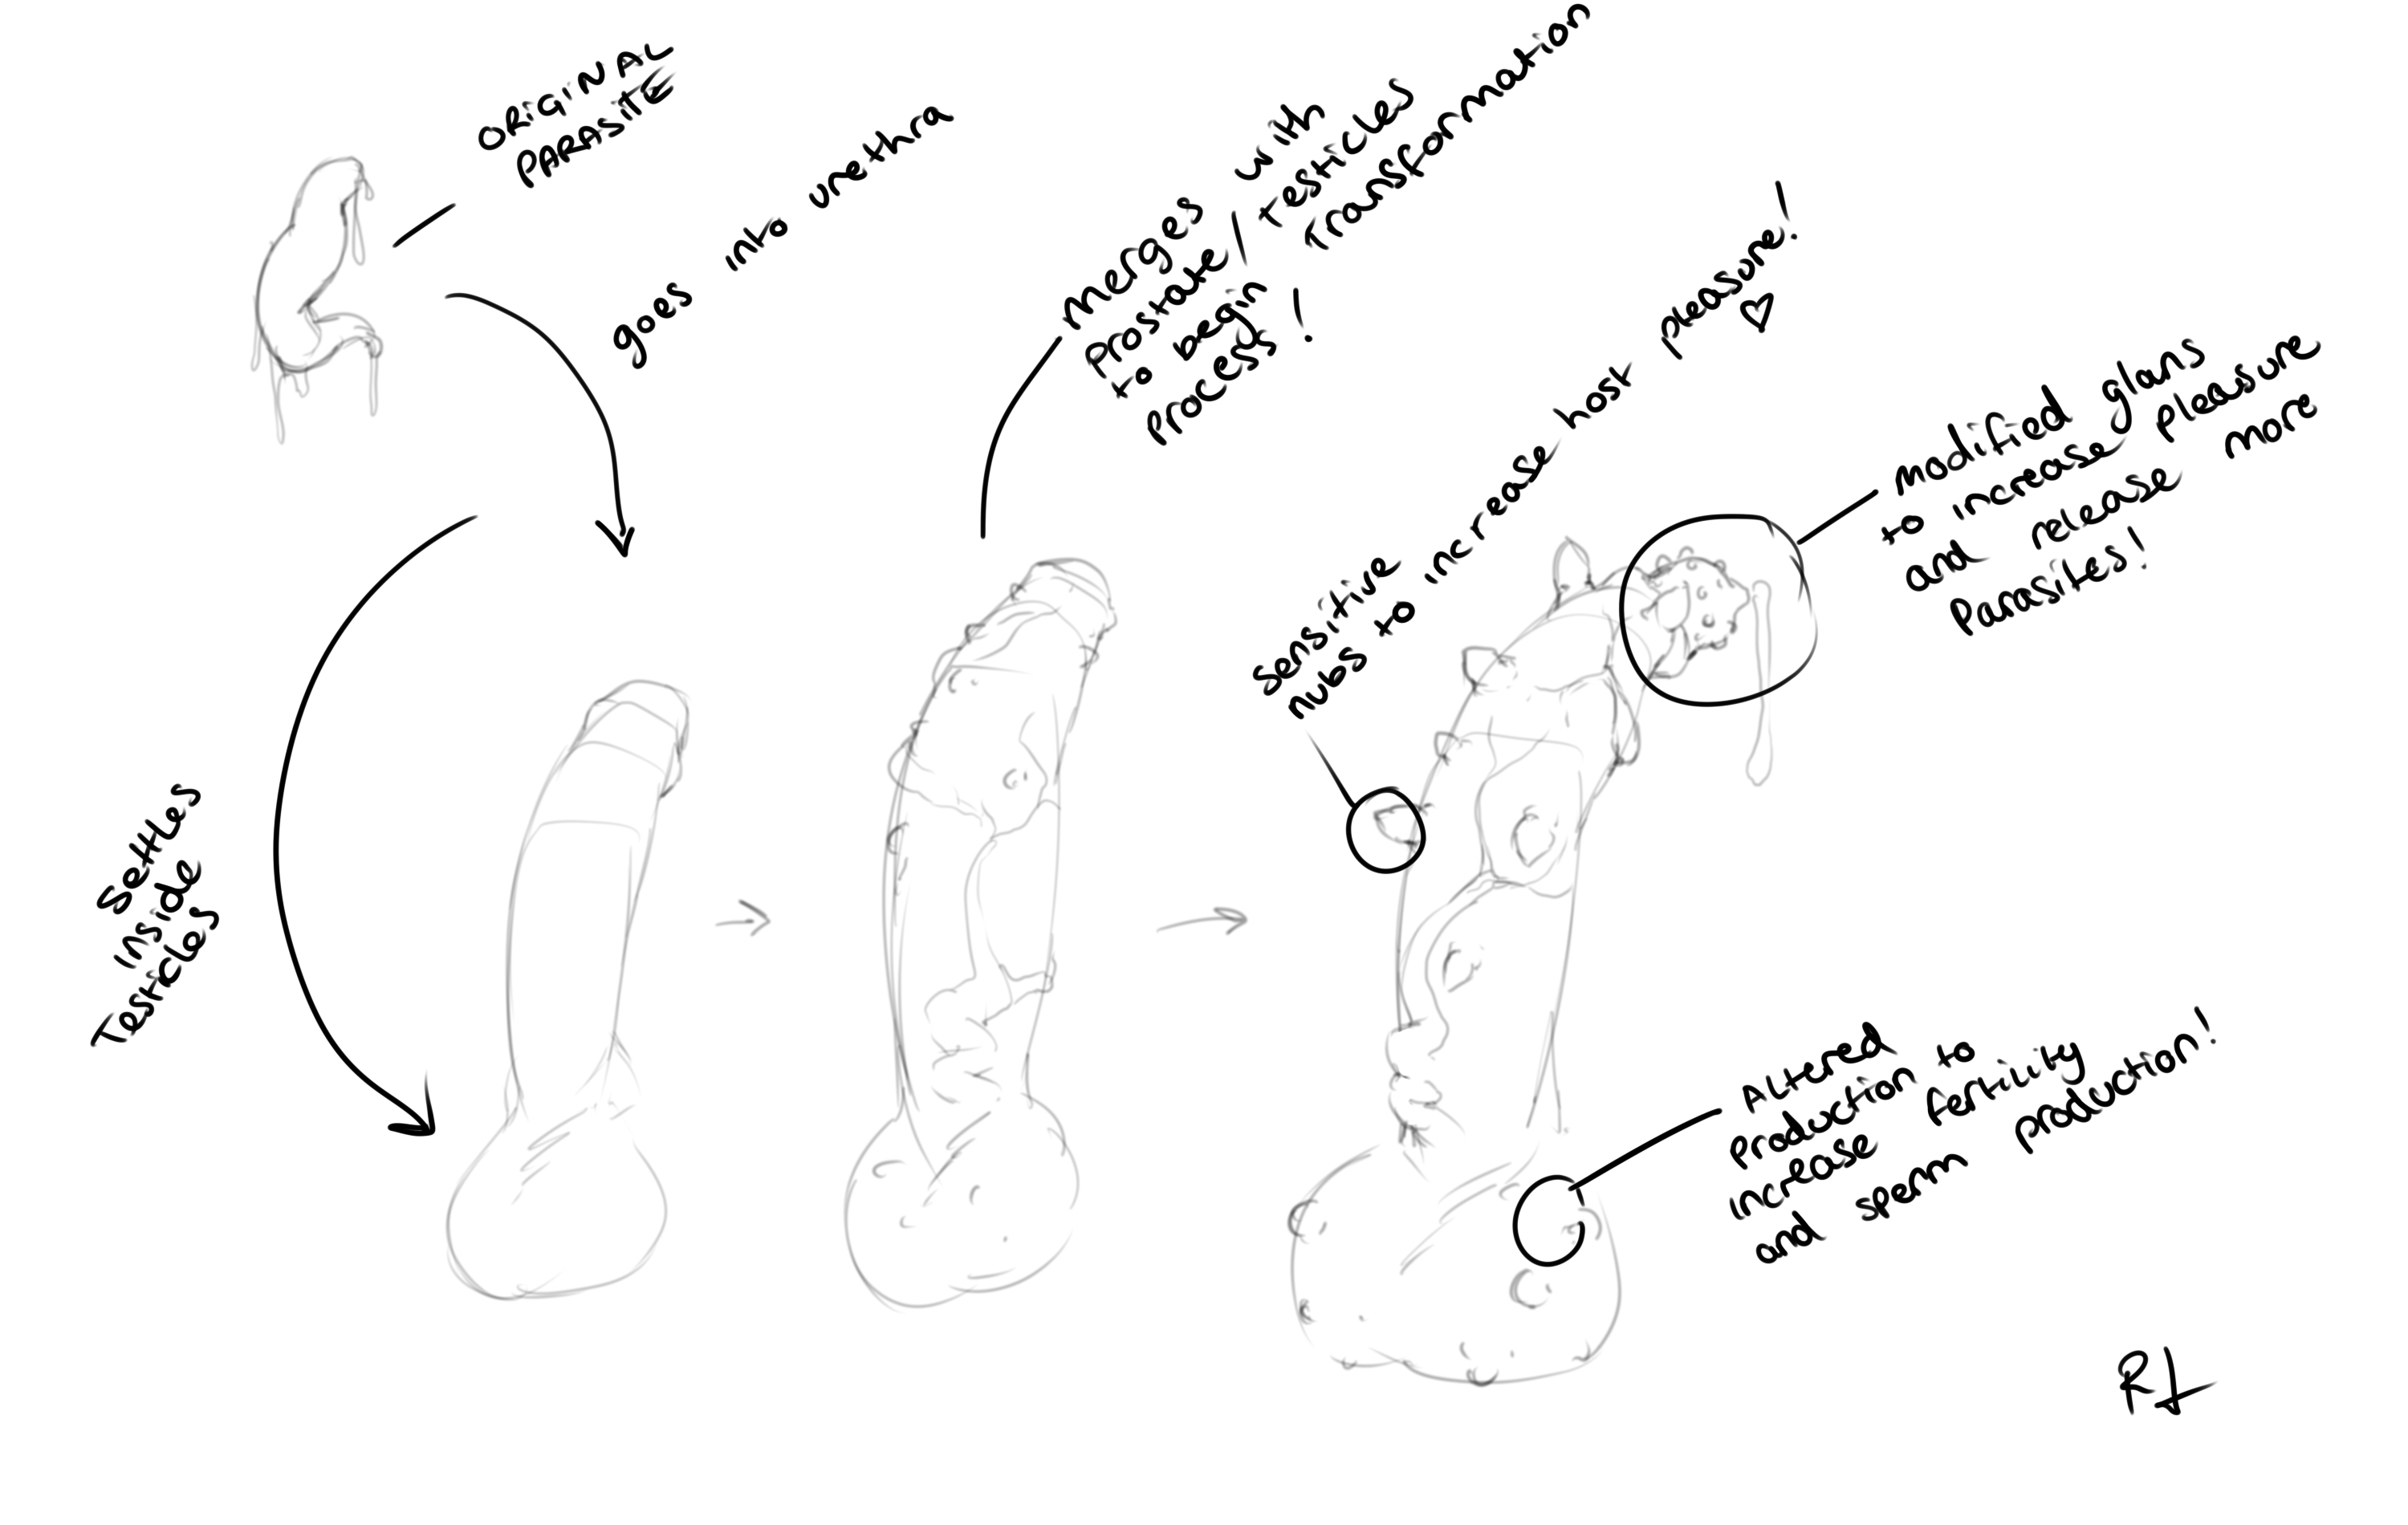 ORIGINAL
PARASITE
goes into urethra
Settles
inside
Testicles
Merges with
Prostate / testicles
to begin Transformation
process!
Sensitive
nubs to increase host pleasure!
modified glans
to increase pleasure
and release more
Parasites!
Altered
production to
increase fertility
and sperm production!